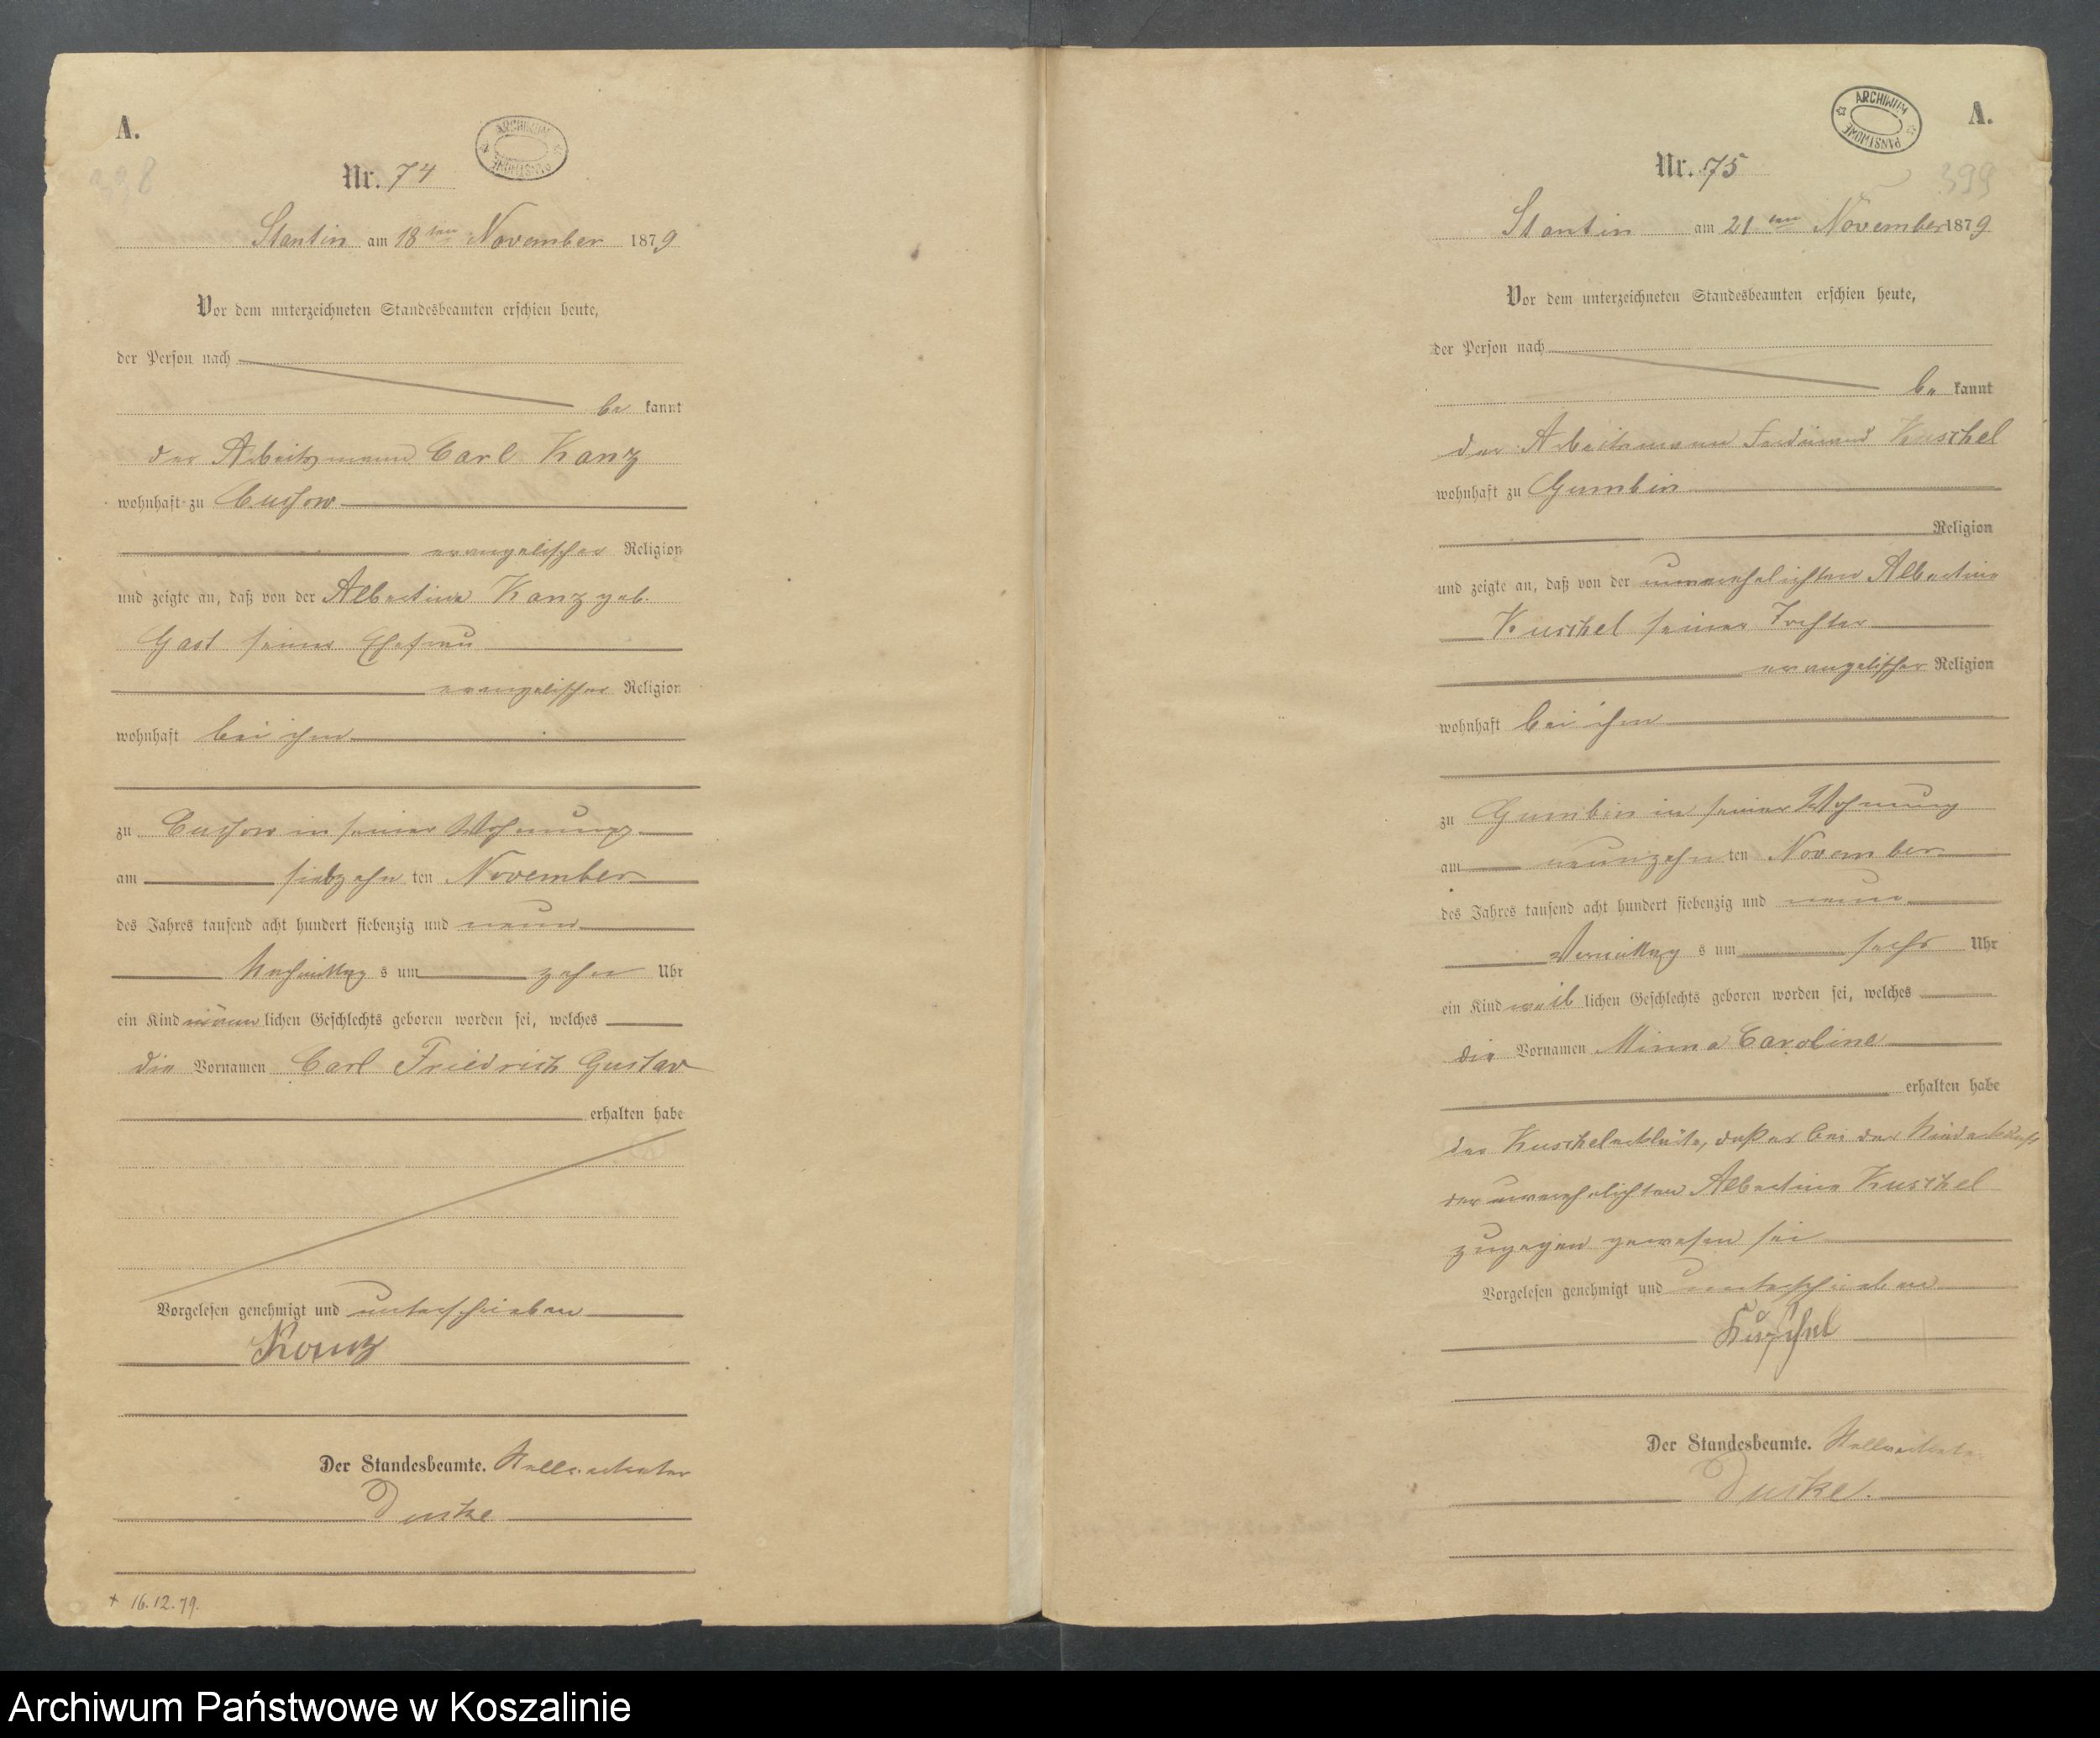 A.
398
ARCHIWUM PAŃSTWOWE
Nr. 74
Stantin am 18ten November 1879
Vor dem unterzeichneten Standesbeamten erschien heute,
der Person nach
be kannt
der Arbeitsmann Carl Kanz
wohnhaft zu Cussow
evangelischer Religion
und zeigte an, daß von der Albertine Kanz geb.
Gast seiner Ehefrau
evangelischer Religion
wohnhaft bei ihm
zu Cussow in seiner Wohnung
am siebzehn ten November
des Jahres tausend acht hundert siebenzig und neun
Nachmittag s um zehn Uhr
ein Kind männ lichen Geschlechts geboren worden sei, welches
die Vornamen Carl Friedrich Gustav
erhalten habe
Vorgelesen genehmigt und unterschrieben
Kanz
Der Standesbeamte. Stellvertreter
Duske
+ 16.12.79.
ARCHIWUM PAŃSTWOWE
A.
399
Nr. 75
Stantin am 21ten November 1879
Vor dem unterzeichneten Standesbeamten erschien heute,
der Person nach
be kannt
der Arbeitsmann Ferdinand Kuschel
wohnhaft zu Gumbin
Religion
und zeigte an, daß von der unverehelichten Albertine
Kuschel seiner Tochter
evangelischer Religion
wohnhaft bei ihm
zu Gumbin in seiner Wohnung
am neunzehn ten November
des Jahres tausend acht hundert siebenzig und neun
Vormittag s um sechs Uhr
ein Kind weib lichen Geschlechts geboren worden sei, welches
die Vornamen Minna Caroline
erhalten habe
der Kuschel erklärte, daß er bei der Niederkunft
der unverehelichten Albertine Kuschel
zugegen gewesen sei
Vorgelesen genehmigt und unterschrieben
Kuschel
Der Standesbeamte. Stellvertreter
Duske.
Archiwum Państwowe w Koszalinie